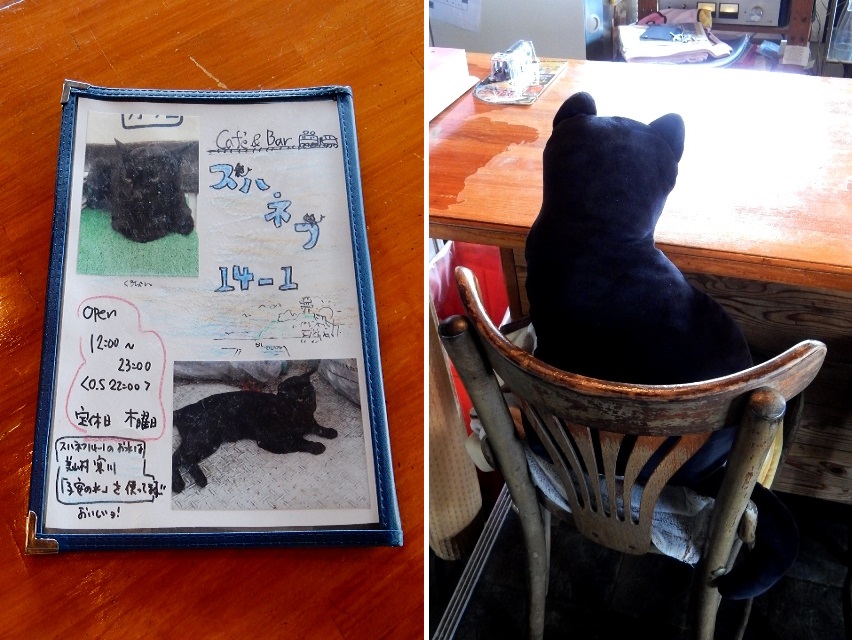 Café & Bar
スハ
ネフ
14-1
くろしお
Open
12:00 ~
23:00
<O.S 22:00>
定休日 木曜日
スハネフ14-1のお水は
美山村 寒川
を使ってます
おいしいョ!